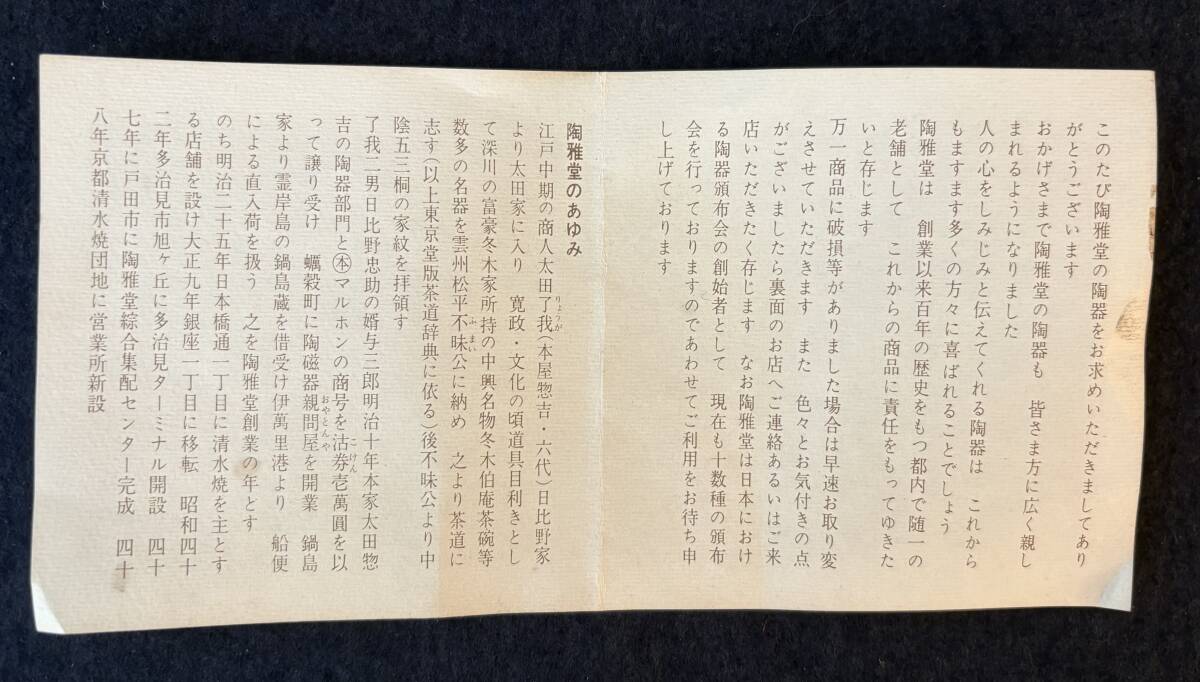 このたび陶雅堂の陶器をお求めいただきましてあり
がとうございます
おかげさまで陶雅堂の陶器も　皆さま方に広く親し
まれるようになりました
人の心をしみじみと伝えてくれる陶器は　これから
もますます多くの方々に喜ばれることでしょう
陶雅堂は　創業以来百年の歴史をもつ都内で随一の
老舗として　これからの商品に責任をもってゆきた
いと存じます
万一商品に破損等がありました場合は早速お取り変
えさせていただきます　また　色々とお気付きの点
がございましたら裏面のお店へご連絡あるいはご来
店いただきたく存じます　なお陶雅堂は日本におけ
る陶器頒布会の創始者として　現在も十数種の頒布
会を行っておりますのであわせてご利用をお待ち申
し上げております
陶雅堂のあゆみ
江戸中期の商人太田了我(りょうが)(本屋惣吉・六代)日比野家
より太田家に入り　寛政・文化の頃道具目利きとし
て深川の富豪冬木家所持の中興名物冬木伯庵茶碗等
数多の名器を雲州松平不昧(ふまい)公に納め　之より茶道に
志す(以上東京堂版茶道辞典に依る)後不昧公より中
陰五三桐の家紋を拝領す
了我二男日比野忠助の婿与三郎明治十年本家太田惣
吉の陶器部門と㊍マルホンの商号を沽券(こけん)壱萬圓を以
って譲り受け　蠣穀町に陶磁器親問屋(おやとんや)を開業　鍋島
家より霊岸島の鍋島蔵を借受け伊萬里港より　船便
による直入荷を扱う　之を陶雅堂創業の年とす
のち明治二十五年日本橋通一丁目に清水焼を主とす
る店舗を設け大正九年銀座一丁目に移転　昭和四十
二年多治見市旭ヶ丘に多治見ターミナル開設　四十
七年に戸田市に陶雅堂綜合集配センター完成　四十
八年京都清水焼団地に営業所新設